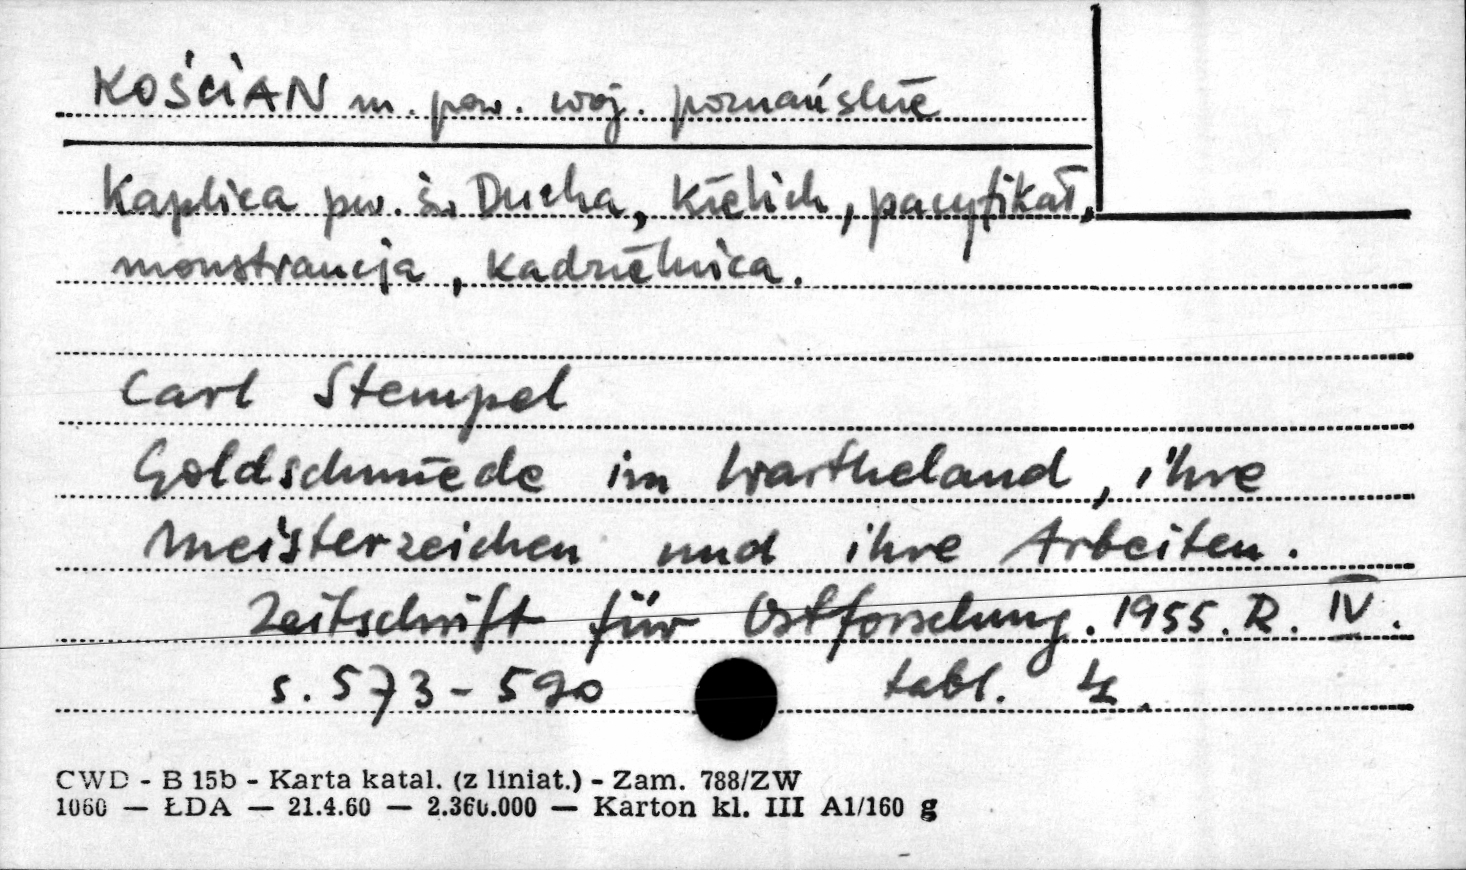 KOŚCIAN m. pow. woj. poznańskie
Kaplica pw. ś. Ducha, Kielich, pacyfikał,
monstrancja, Kadzielnica.
Carl Stempel
Goldschmiede im Wartheland, ihre
Meisterzeichen und ihre Arbeiten.
Zeitschrift für Ostforschung. 1955. R. IV.
s. 573-590 tabl. 4.
CWD - B 15b - Karta katal. (z liniat.) - Zam. 788/ZW
1060 — ŁDA — 21.4.60 — 2.360.000 — Karton kl. III A1/160 g